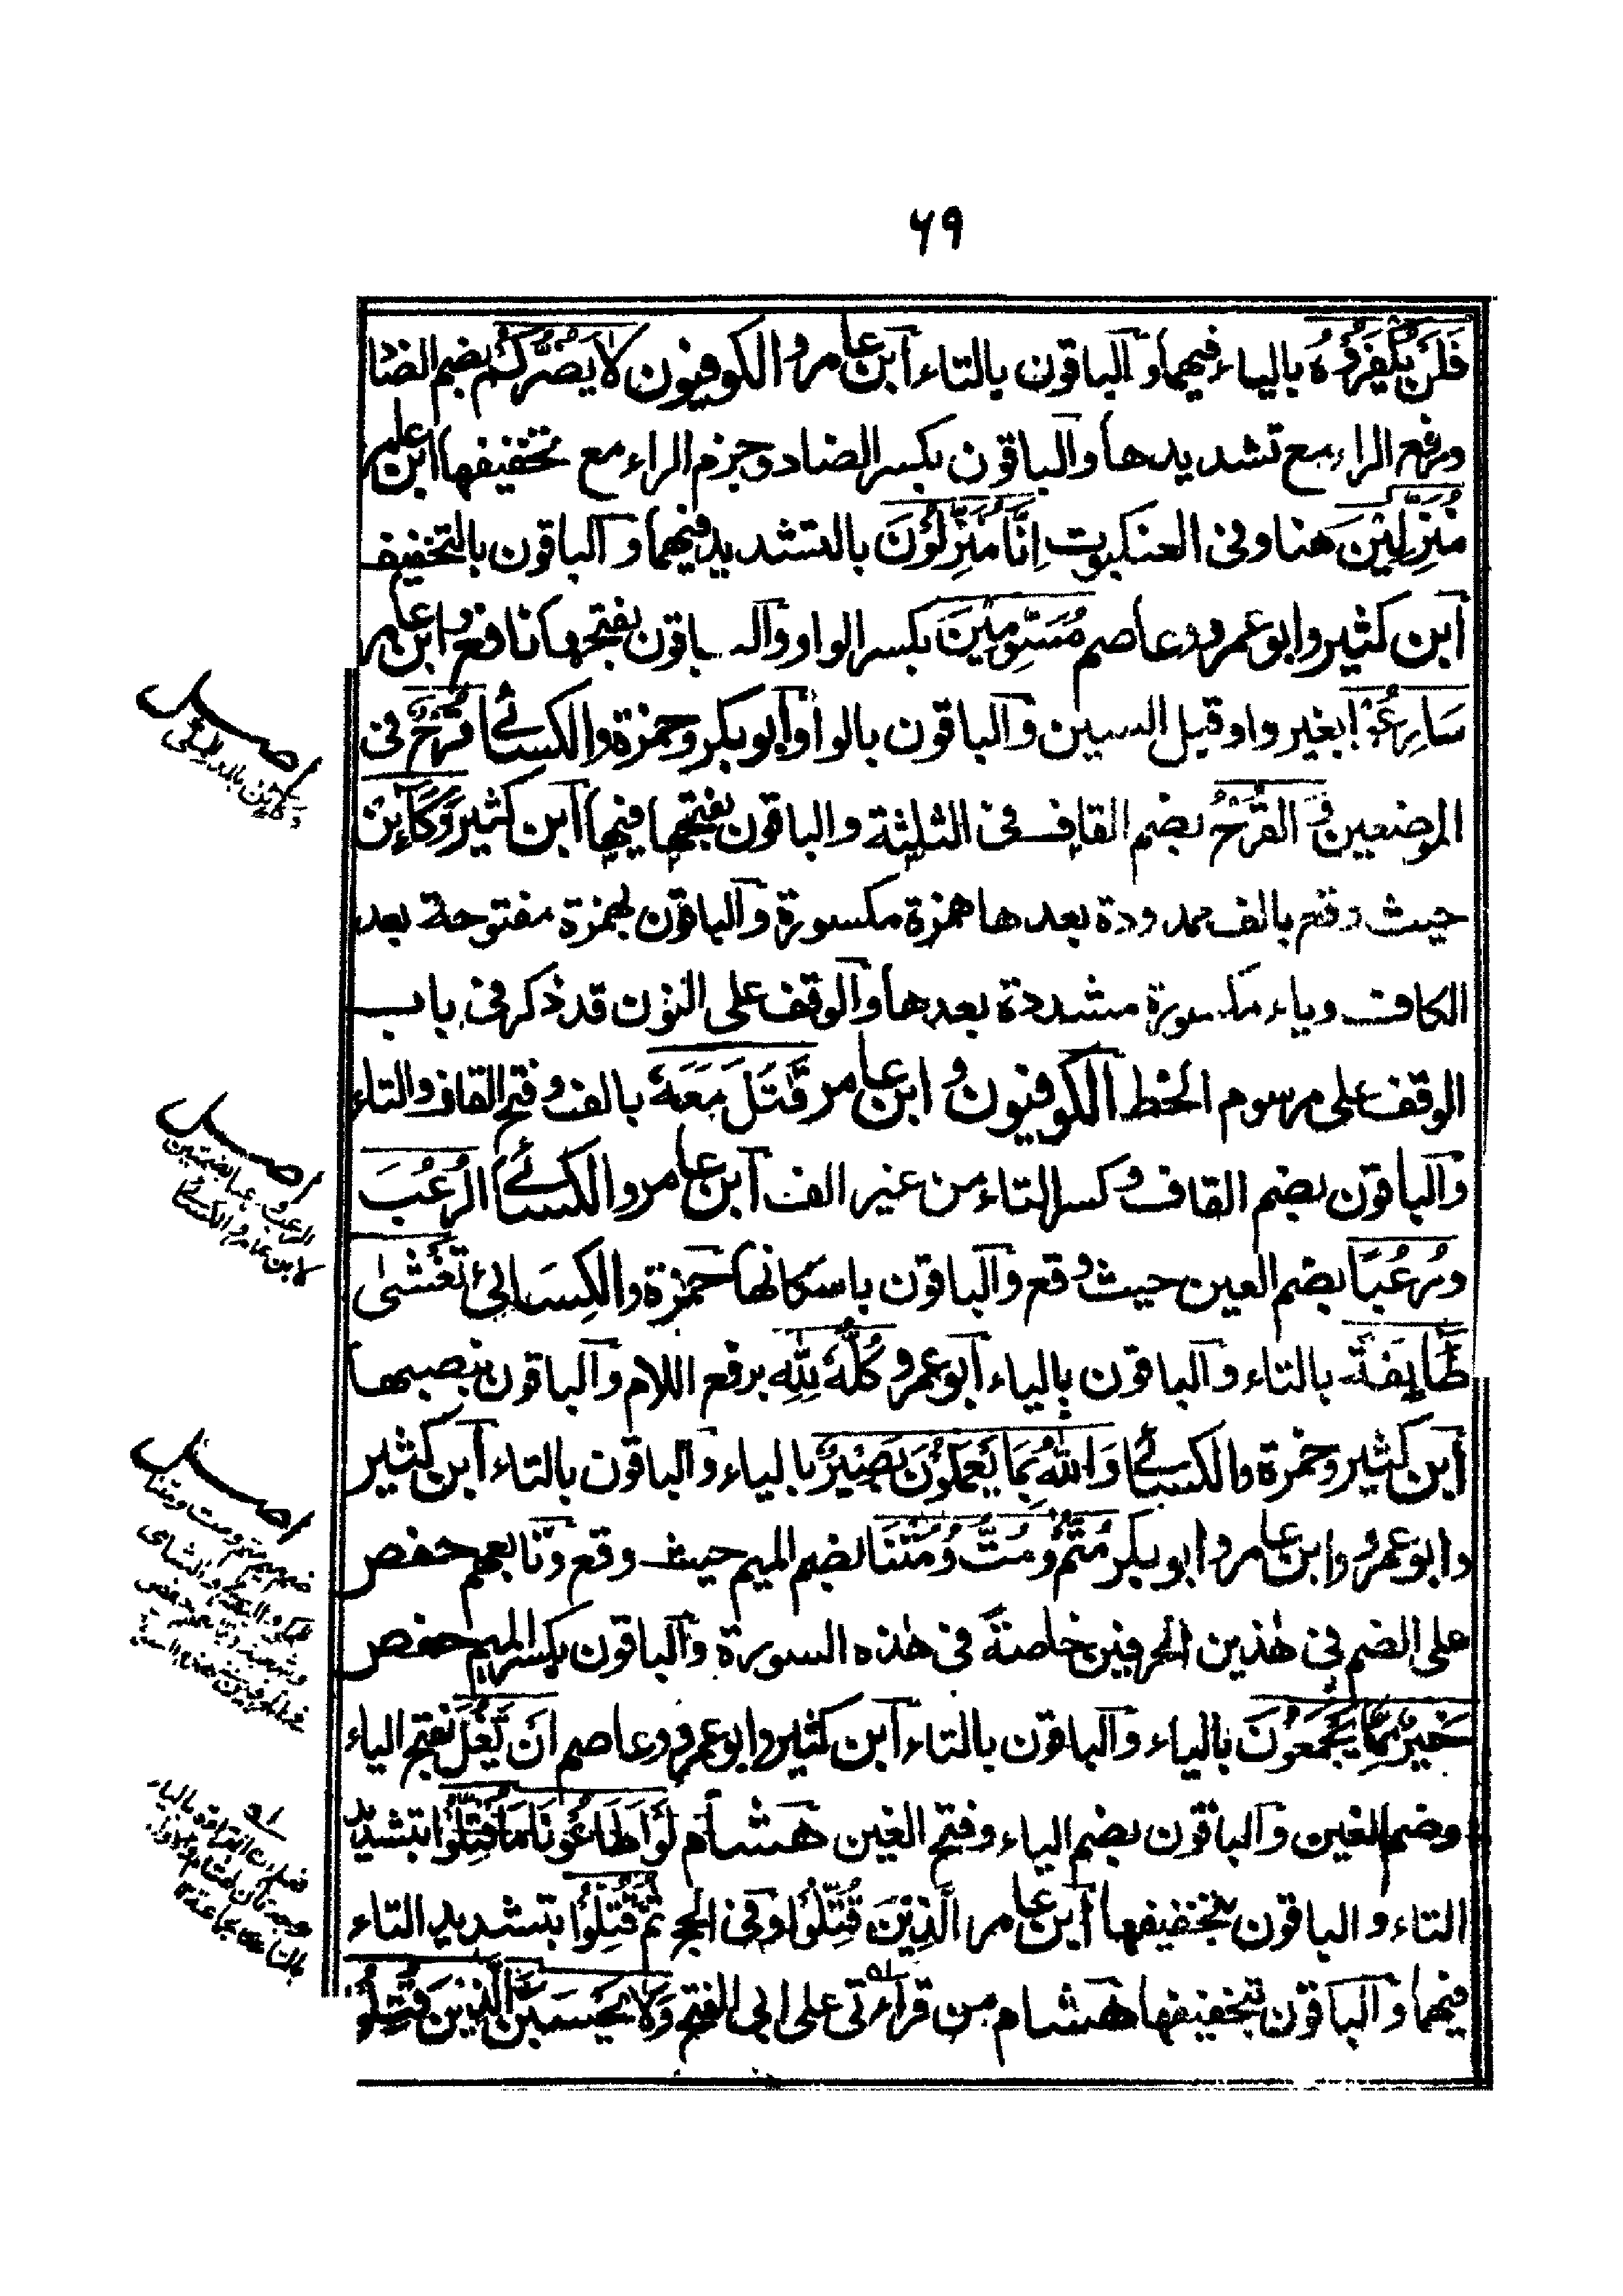 ٦٩
فَلَنْ يُكْفَرُوْهُ بالياء فيهما والباقون بالتاء ابن عامر والكوفيون لَا يَضُرُّكُمْ بضم الضاد
ورفع الراء مع تشديدها والباقون بكسر الضاد وجزم الراء مع تخفيفها ابن عامر
مُنَزَّلِيْنَ هنا وفى العنكبوت اِنَّا مُنَزِّلُوْنَ بالتشديد فيهما والباقون بالتخفيف
ابن كثير وابو عمرو وعاصم مُسَوِّمِيْنَ بكسر الواو والباقون بفتحها نافع وابن عامر
سَارِعُوْا بغير واو قبل السين والباقون بالواو ابو بكر وحمزة والكسائى قُرْحٌ فى
الموضعين و القُرْحُ بضم القاف فى الثلثة والباقون بفتحها فيها ابن كثير وَكَآئِنْ
حيث وقع بالف ممدودة بعدها همزة مكسورة والباقون بهمزة مفتوحة بعد
الكاف وياء مكسورة مشددة بعدها والوقف على النون قد ذكر فى باب
الوقف على مرسوم الخط الكوفيون و ابن عامر قٰتَلَ مَعَهٗ بالف وفتح القاف والتاء
والباقون بضم القاف وكسر التاء من غير الف ابن عامر والكسائى الرُعُبَ
ورُعُبًا بضم العين حيث وقع والباقون باسكانها حمزة والكِسَائِى تَغْشٰى
طَّائِفَةً بالتاء والباقون بالياء ابو عمرو كُلُّهٗ لِلّٰهِ برفع اللام والباقون بنصبها
ابن كثير وحمزة والكسائى وَاللّٰهُ بِمَا يَعْمَلُوْنَ بَصِيْرٌ بالياء والباقون بالتاء ابن كثير
وابو عمرو وابن عامر وابو بكر مُتُّمْ وَمُتُّ وَمُتْنَا بضم الميم حيث وقع وتابعهم حفص
على الضم فى هٰذين الحرفين خاصةً فى هٰذه السورة والباقون بكسر الميم حفص
خَيْرٌ مِمَّا يَجْمَعُوْنَ بالياء والباقون بالتاء ابن كثير وابو عمرو وعاصم اَنْ يَّغُلَّ بفتح الياء
وضم الغين والباقون بضم الياء وفتح الغين هشام لَوْ اَطَاعُوْنَا مَا قُتِّلُوْا بتشديد
التاء والباقون بتخفيفها ابن عامر الَّذِيْنَ قُتِّلُوْا وفى الحج ثُمَّ قُتِّلُوْا بتشديد التاء
فيهما والباقون بتخفيفها هشام من قراءتى على ابى الفتح وَلَا يَحْسَبَنَّ الَّذِيْنَ قُتِلُوْا
اصل
اصل
الرعب رعبا بضمتين
لابن عامر والكسائى
اصل